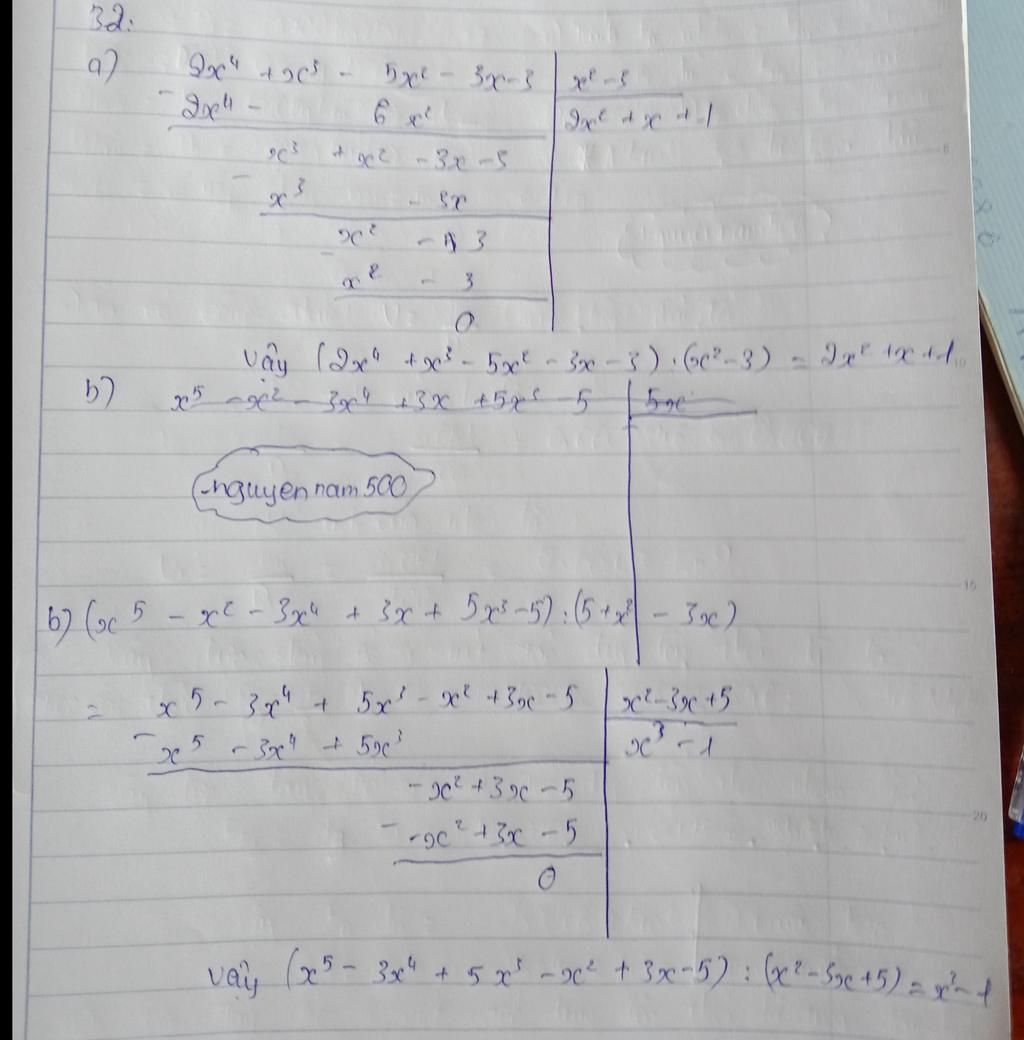 32.
a) 2x⁴ + x³ - 5x² - 3x - 3 | x² - 3
- 2x⁴ - 6x² | 2x² + x + 1
x³ + x² - 3x - 3
- x³ - 3x
x² - 3
- x² - 3
0
Vậy (2x⁴ + x³ - 5x² - 3x - 3) : (x² - 3) = 2x² + x + 1
b) x⁵ - x² - 3x⁴ + 3x + 5x³ - 5 | 5x
nguyennam500
b) (x⁵ - x² - 3x⁴ + 3x + 5x³ - 5) : (5 + x² - 3x)
= x⁵ - 3x⁴ + 5x³ - x² + 3x - 5 | x² - 3x + 5
- x⁵ - 3x⁴ + 5x³ | x³ - 1
- x² + 3x - 5
- -x² + 3x - 5
0
Vậy (x⁵ - 3x⁴ + 5x³ - x² + 3x - 5) : (x² - 3x + 5) = x³ - 1